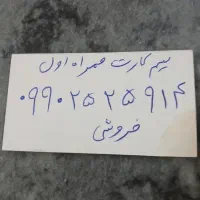 سیم کارت همراه اول
۰۹۹۰۲۵۲۵۹۱۴
فروشی